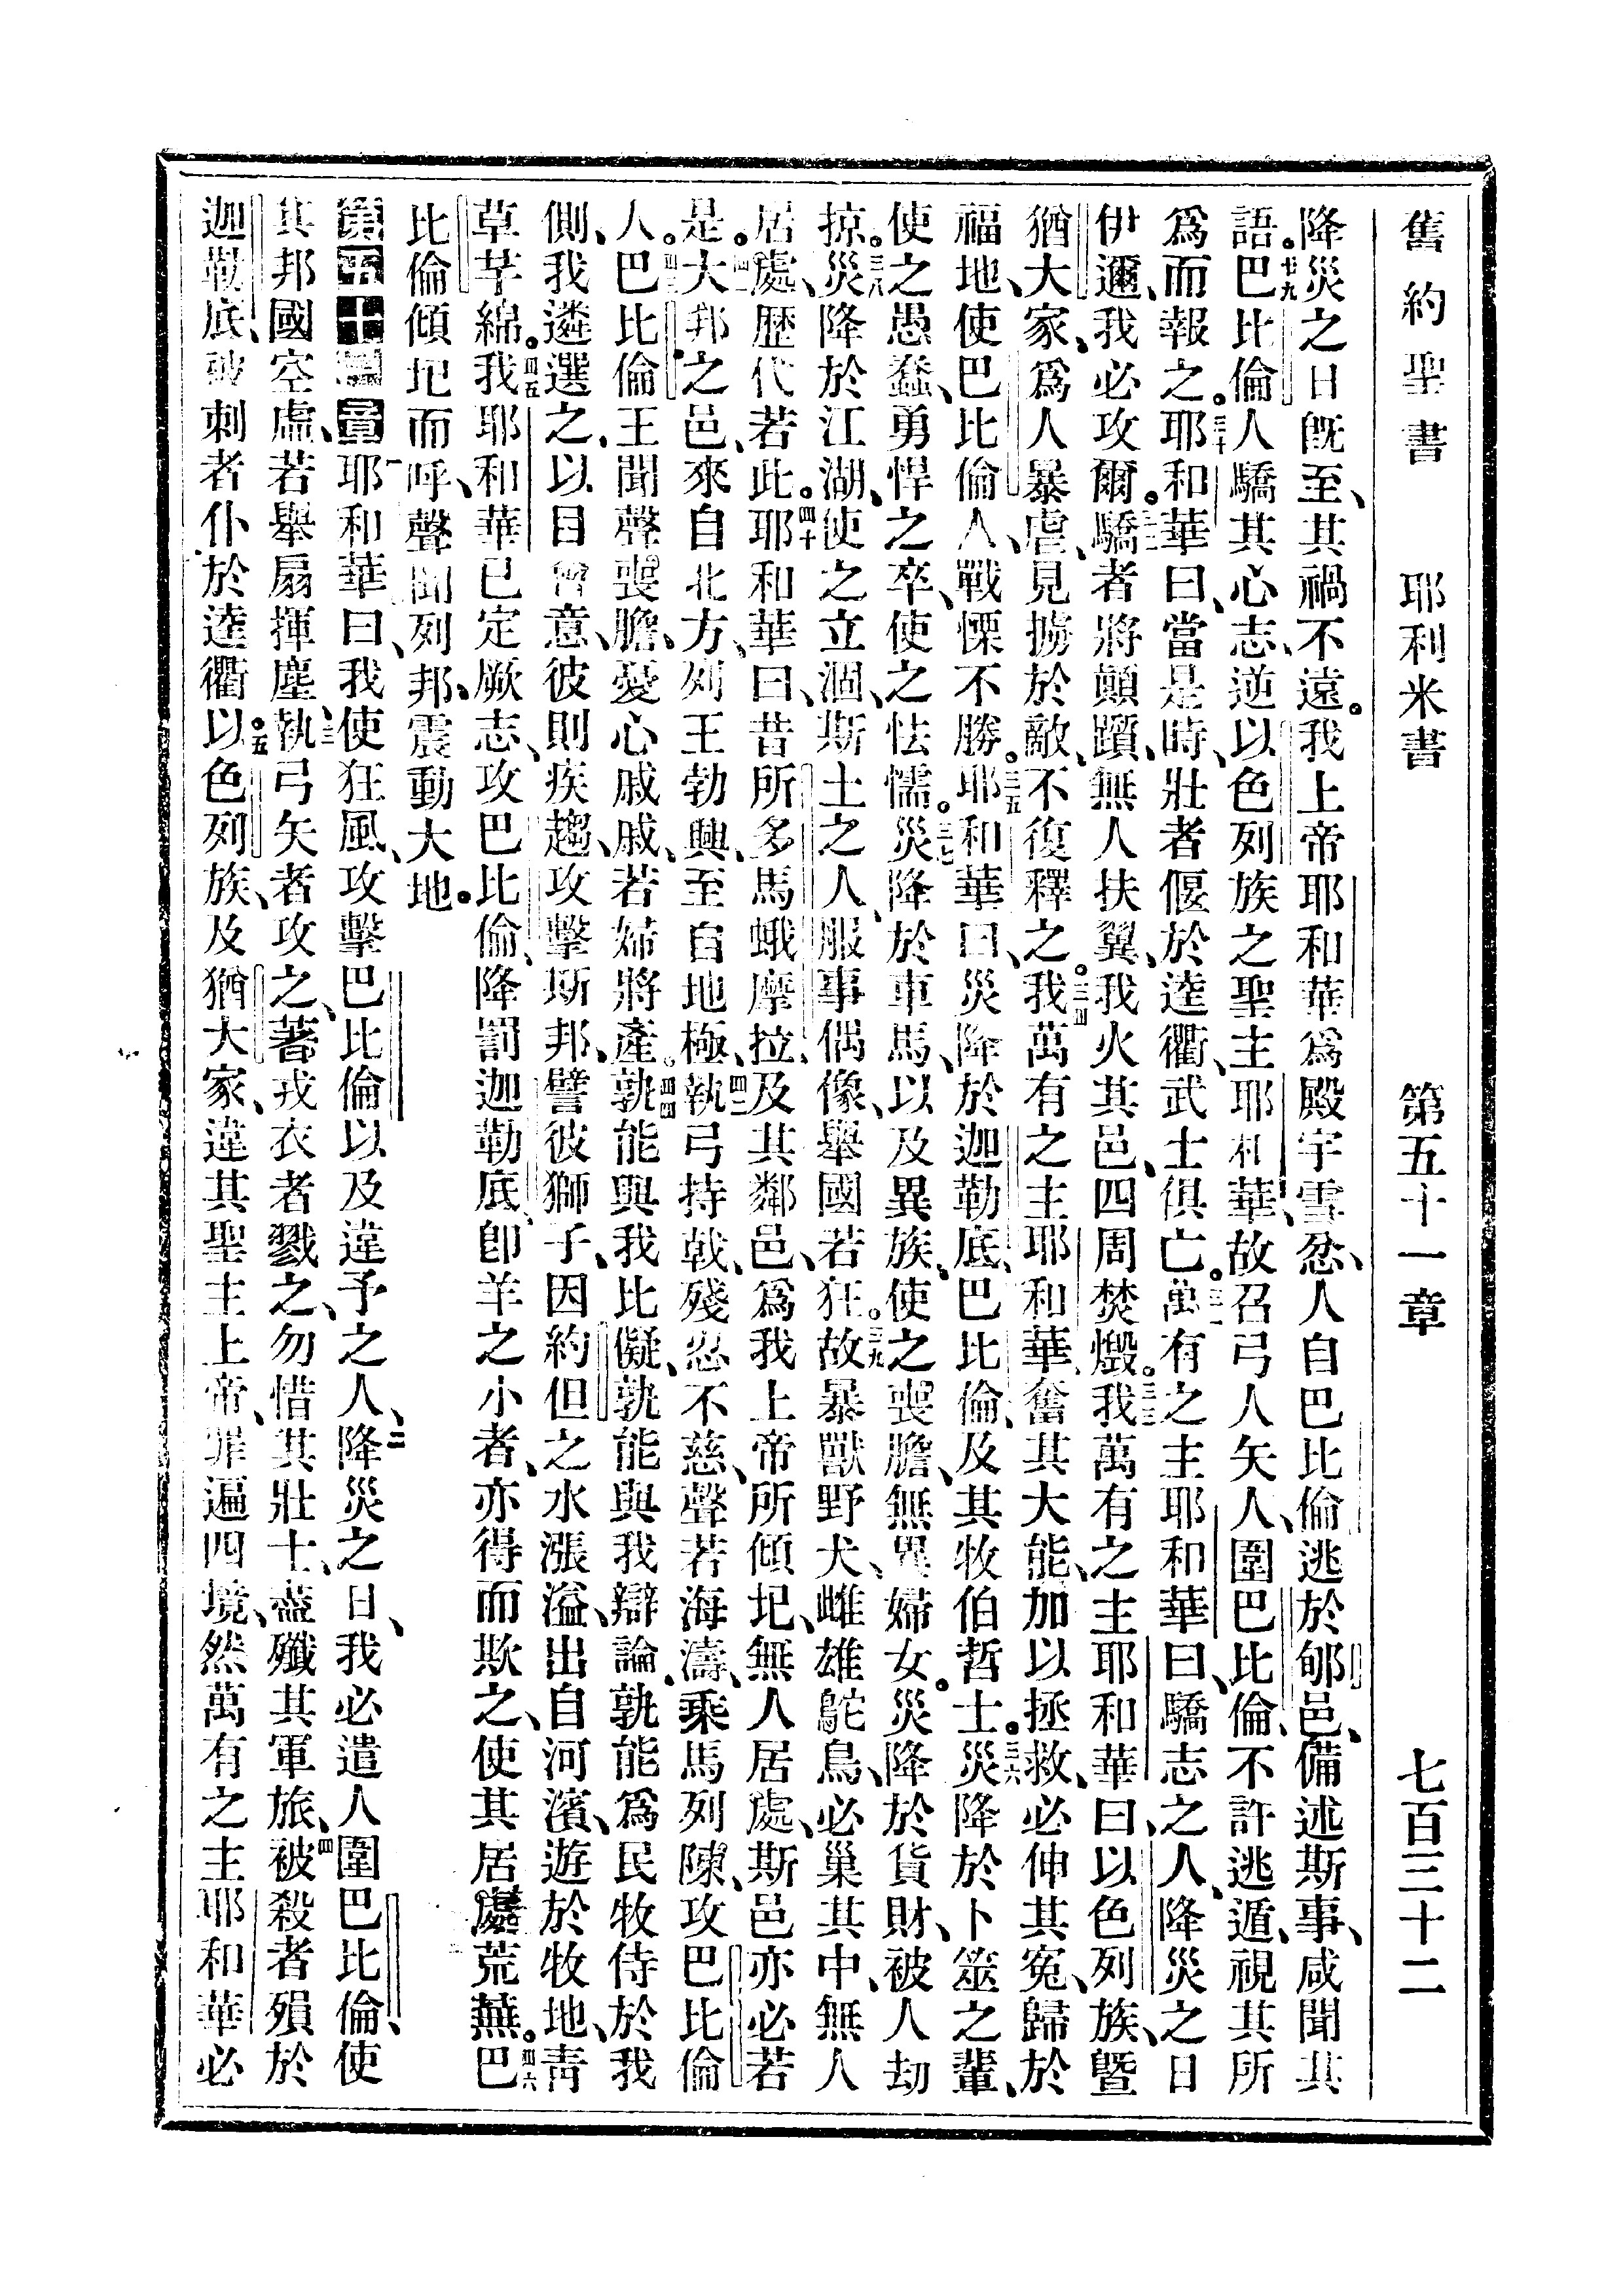 舊約聖書 耶利米書 第五十一章 七百三十二
降災之日旣至、其禍不遠。我上帝耶和華爲殿宇雪忿、人自巴比倫、逃於郇邑、備述斯事、咸聞其
語。廿九巴比倫人驕其心志、逆以色列族之聖主耶和華、故召弓人矢人、圍巴比倫、不許逃遁、視其所
爲而報之。三十耶和華曰、當是時、壯者偃於逵衢、武士俱亡。三一萬有之主耶和華曰、驕志之人、降災之日
伊邇、我必攻爾。三二驕者將顚躓、無人扶翼、我火其邑、四周焚燬。三三我萬有之主耶和華曰、以色列族、曁
猶大家、爲人暴虐、見擄於敵、不復釋之。三四我萬有之主耶和華、奮其大能、加以拯救、必伸其冤、歸於
福地、使巴比倫人、戰慄不勝。三五耶和華曰、災降於迦勒底、巴比倫、及其牧伯哲士。三六災降於卜筮之輩、
使之愚蠢、勇悍之卒、使之怯懦。三七災降於車馬、以及異族、使之喪膽、無異婦女。災降於貨財、被人劫
掠。三八災降於江湖、使之立涸、斯土之人、服事偶像、舉國若狂。三九故暴獸野犬、雌雄鴕鳥、必巢其中、無人
居處、歷代若此。四十耶和華曰、昔所多馬蛾摩拉、及其鄰邑、爲我上帝所傾圮、無人居處、斯邑亦必若
是。四一大邦之邑、來自北方、列王勃興、至自地極、四二執弓持戟、殘忍不慈、聲若海濤、乘馬列陳、攻巴比倫
人。四三巴比倫王聞聲喪膽、憂心戚戚、若婦將產。四四孰能與我比儗、孰能與我辯論、孰能爲民牧侍於我
側、我遴選之、以目會意、彼則疾趨、攻擊斯邦、譬彼獅子、因約但之水漲溢、出自河濱、遊於牧地、靑
草芊綿。四五我耶和華已定厥志、攻巴比倫、降罰迦勒底、卽羊之小者、亦得而欺之、使其居處荒蕪。四六巴
比倫傾圮而呼、聲聞列邦、震動大地。
第五十一章耶和華曰、我使狂風、攻擊巴比倫以及違予之人、二降災之日、我必遣人圍巴比倫、使
其邦國空虛、若舉扇揮塵、三執弓矢者攻之、著戎衣者戮之、勿惜其壯士、盡殲其軍旅、四被殺者殞於
迦勒底、被刺者仆於逵衢。五以色列族、及猶大家、違其聖主上帝、罪遍四境、然萬有之主耶和華必